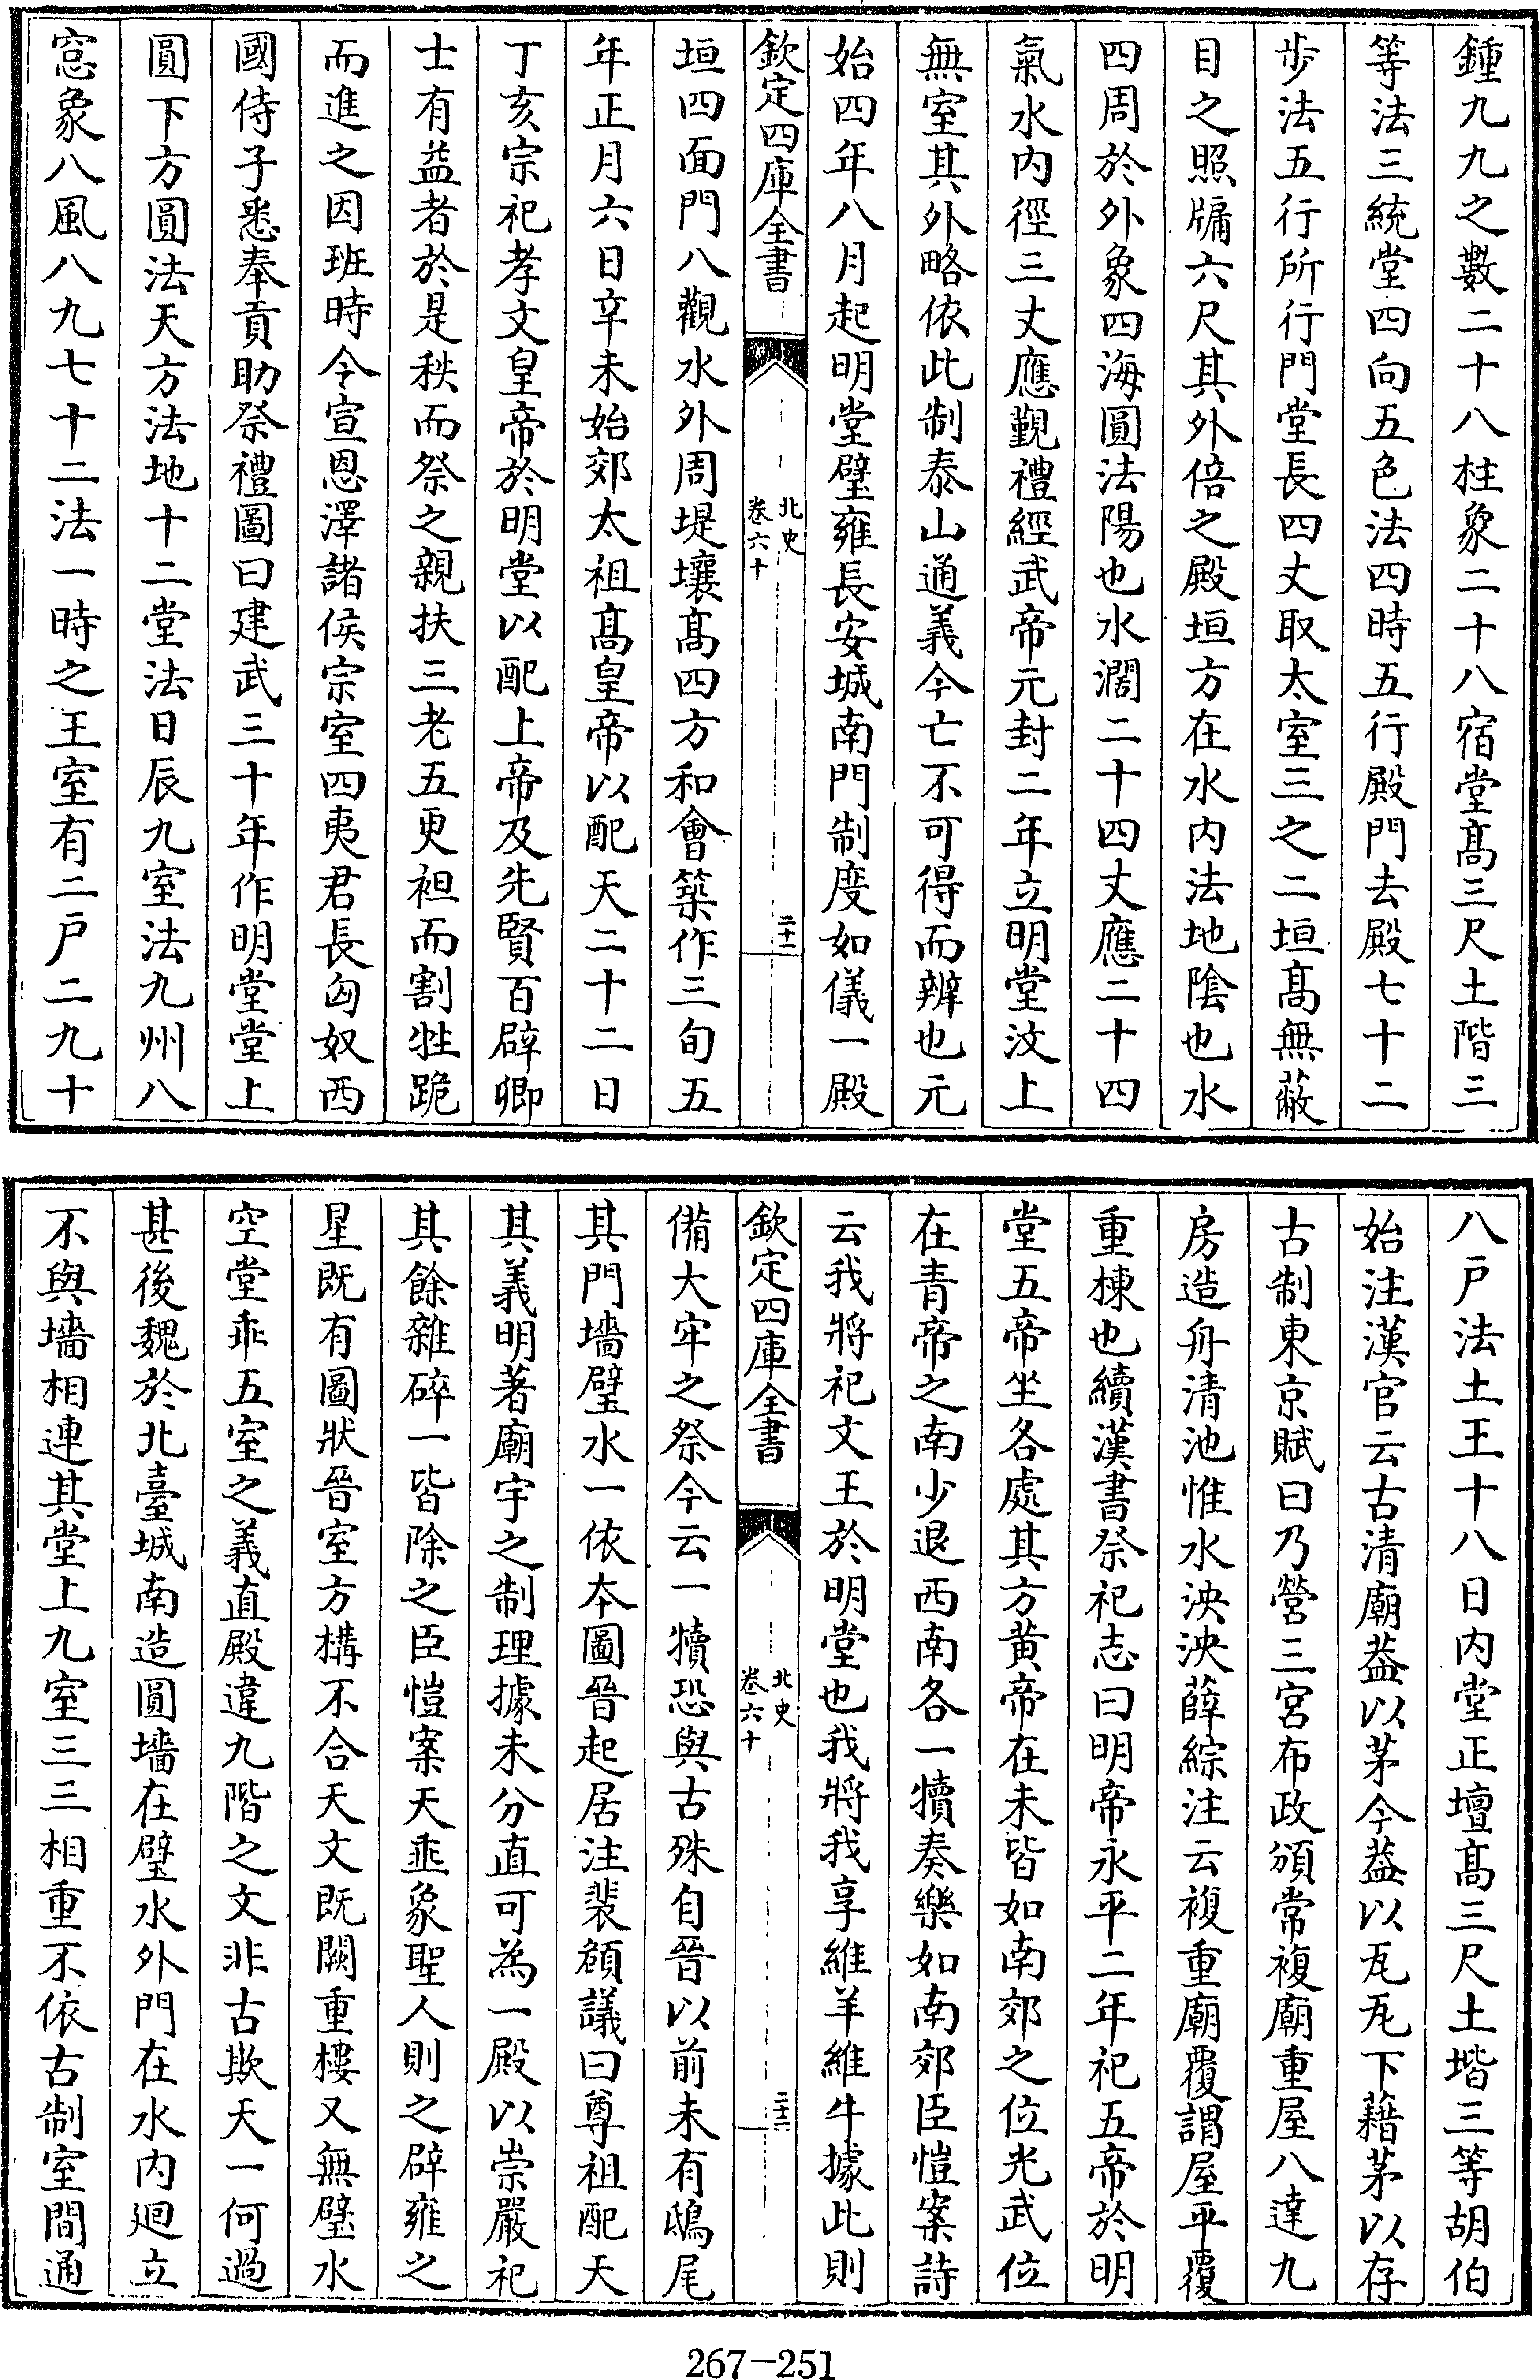 鍾九九之數二十八柱象二十八宿堂髙三尺土階三
等法三統堂四向五色法四時五行殿門去殿七十二
步法五行所行門堂長四丈取太室三之二垣髙無蔽
目之照牖六尺其外倍之殿垣方在水内法地陰也水
四周於外象四海圓法陽也水濶二十四丈應二十四
氣水内徑三丈應覲禮經武帝元封二年立明堂汶上
無室其外略依此制泰山通義今亡不可得而辨也元
始四年八月起明堂辟雍長安城南門制度如儀一殿
欽定四庫全書
北史
卷六十
二十一
垣四面門八觀水外周堤壤髙四方和會築作三旬五
年正月六日辛未始郊太祖髙皇帝以配天二十二日
丁亥宗祀孝文皇帝於明堂以配上帝及先賢百辟卿
士有益者於是秩而祭之親扶三老五更袒而割牲跪
而進之因班時令宣恩澤諸侯宗室四夷君長匈奴西
國侍子悉奉貢助祭禮圖曰建武三十年作明堂堂上
圓下方圓法天方法地十二堂法日辰九室法九州八
窓象八風八九七十二法一時之王室有二戸二九十
八戸法土王十八日内堂正壇髙三尺土堦三等胡伯
始注漢官云古清廟葢以茅今葢以瓦瓦下藉茅以存
古制東京賦曰乃營三宮布政頒常複廟重屋八達九
房造舟清池惟水泱泱薛綜注云複重廟覆謂屋平覆
重棟也續漢書祭祀志曰明帝永平二年祀五帝於明
堂五帝坐各處其方黄帝在未皆如南郊之位光武位
在青帝之南少退西南各一犢奏樂如南郊臣愷案詩
云我將祀文王於明堂也我將我享維羊維牛據此則
欽定四庫全書
北史
卷六十
二十二
備大牢之祭今云一犢恐與古殊自晉以前未有鴟尾
其門墻璧水一依本圖晉起居注裴頠議曰尊祖配天
其義明著廟宇之制理據未分直可為一殿以崇嚴祀
其餘雜碎一皆除之臣愷案天垂象聖人則之辟雍之
星既有圖狀晉室方構不合天文既闕重樓又無璧水
空堂乖五室之義直殿違九階之文非古欺天一何過
甚後魏於北臺城南造圓墻在璧水外門在水内廻立
不與墻相連其堂上九室三三相重不依古制室間通
267-251